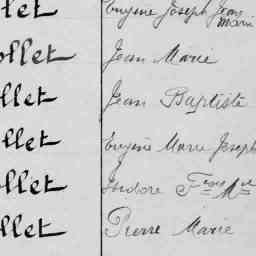 llet Eugène Joseph Jean Marie
ollet Jean Marie
llet Jean Baptiste
llet Eugène Marie Joseph
ollet Isidore Fçois Mie
ollet Pierre Marie